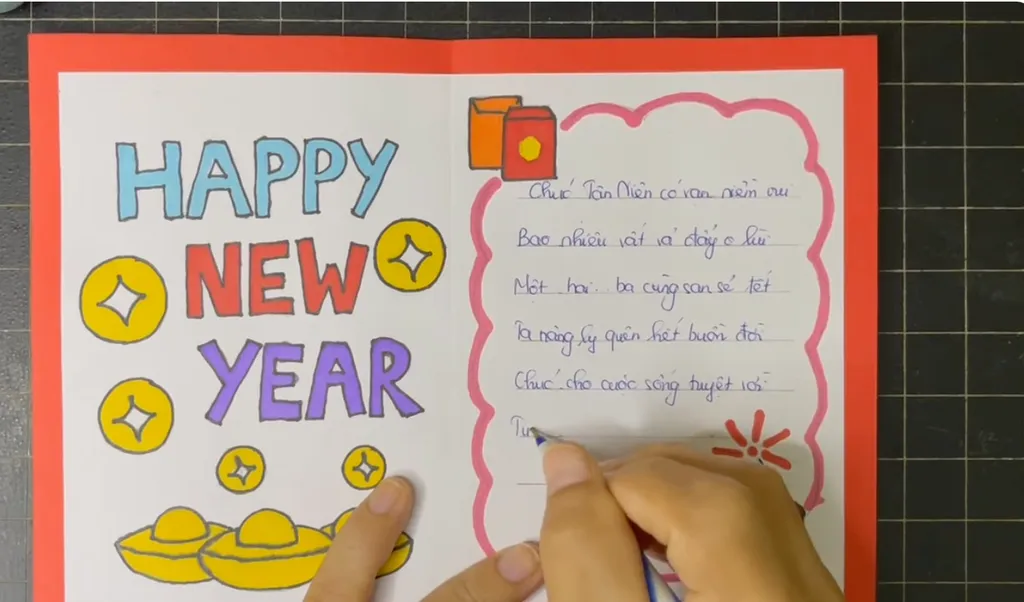 HAPPY
NEW
YEAR
Chúc Tân Niên có vạn niềm vui
Bao nhiêu vất vả đẩy
Một hai ba cùng san sẻ tết
Ta nâng ly quên hết buồn đời
Chúc cho cuộc sống tuyệt vời